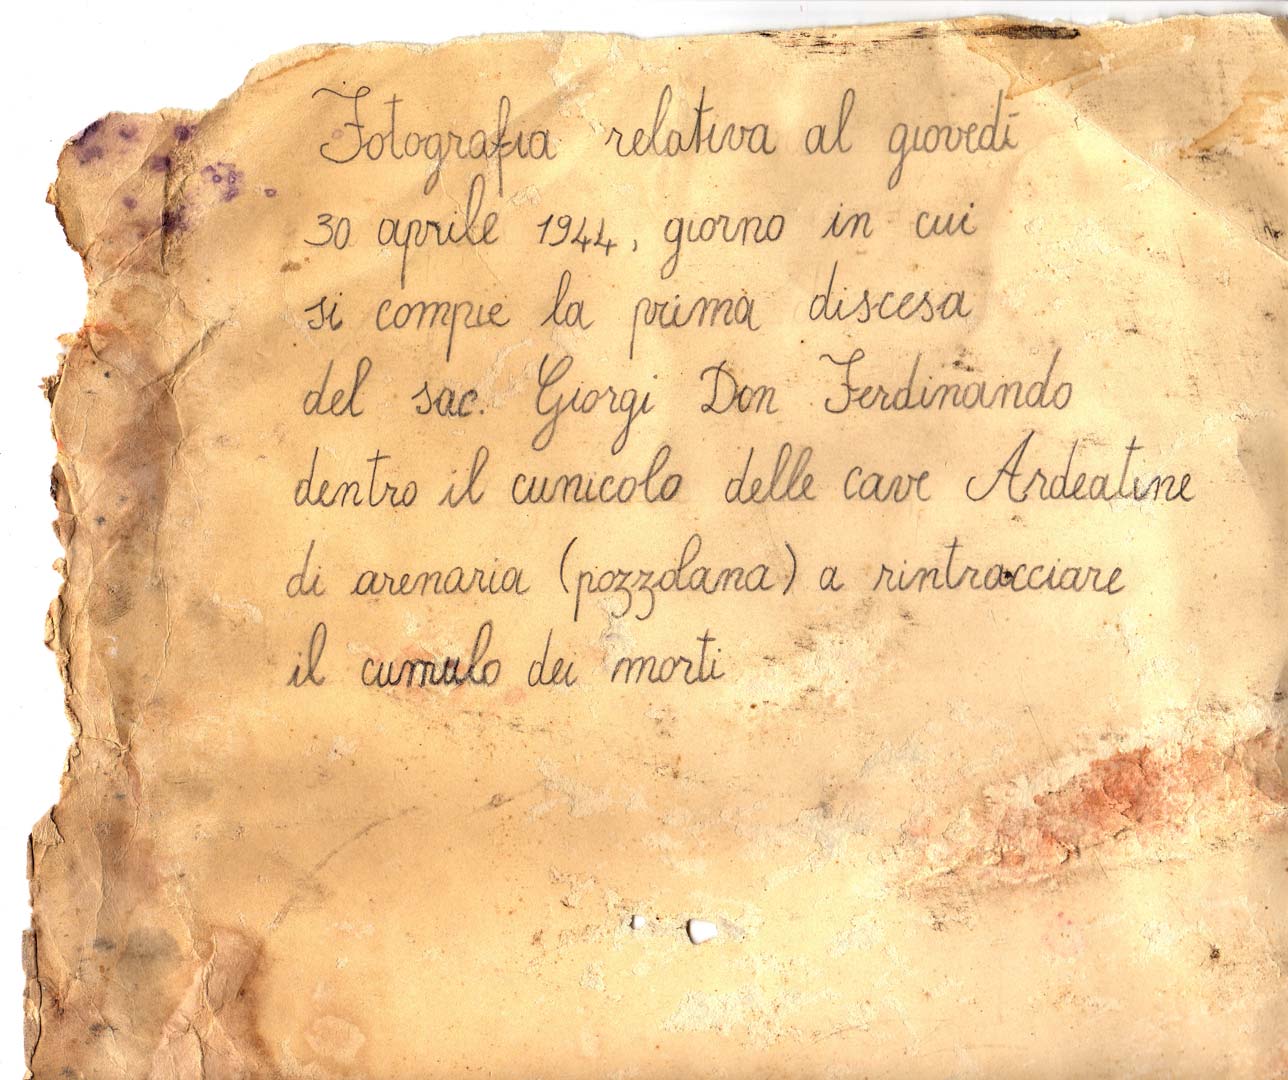 Fotografia relativa al giovedì
30 aprile 1944, giorno in cui
si compie la prima discesa
del sac. Giorgi Don Ferdinando
dentro il cunicolo delle cave Ardeatine
di arenaria (pozzolana) a rintracciare
il cumulo dei morti